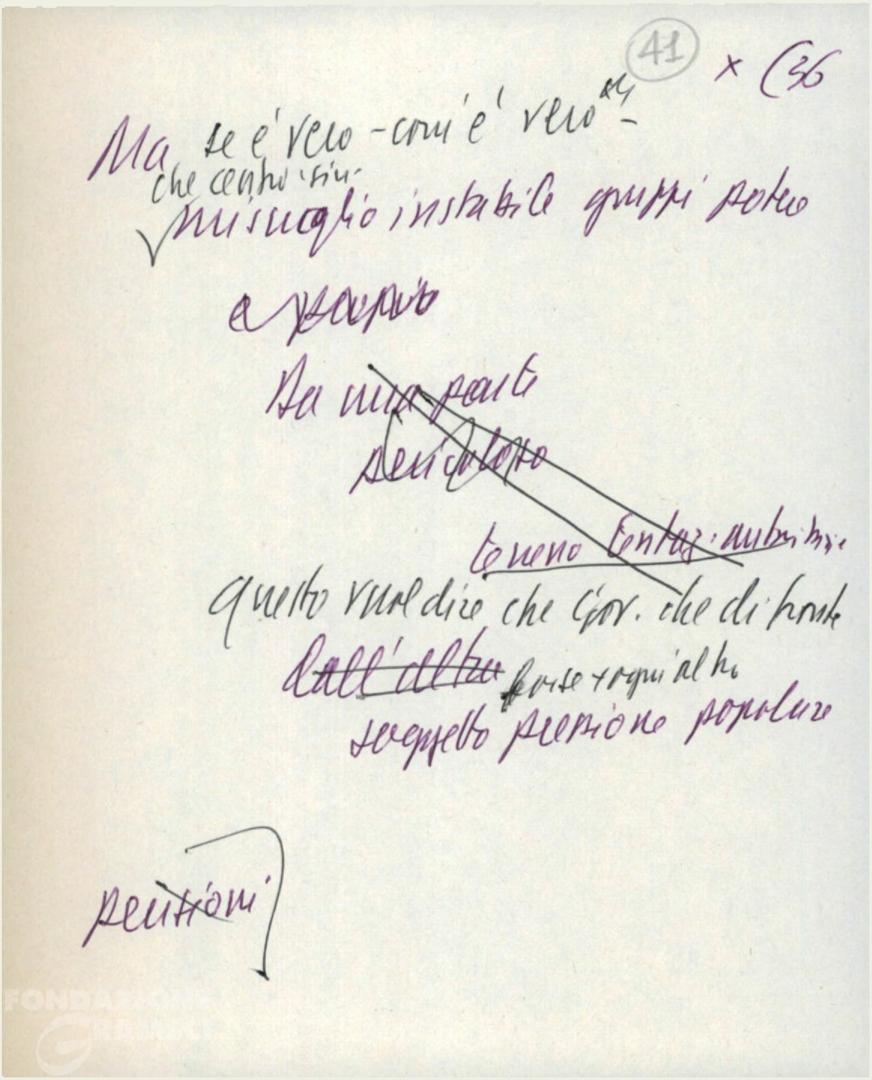 41
x (36
Ma se è vero - com'è vero -
che centro-sin.
miscuglio instabile gruppi potere
e
Da una parte
pericoloso
terreno tentaz. autorit
Questo vuol dire che Gov. che di fronte
Dall'altra forse + ogni altro
soggetto pressione popolare
pensioni
FONDAZIONE
GRAMSCI